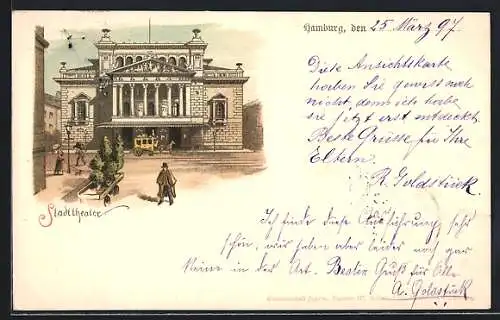 Hamburg, den 25 März 97
Diese Ansichtskarte
haben Sie gewiss noch
nicht, denn ich habe
sie jetzt erst entdeckt.
Beste Grüsse für Ihre
Eltern.
R. Goldstück.
Stadttheater
Ich finde diese Ausführung sehr
schön, wir haben aber leider noch gar
keine in der Art. Besten Gruß für
A. Goldstück